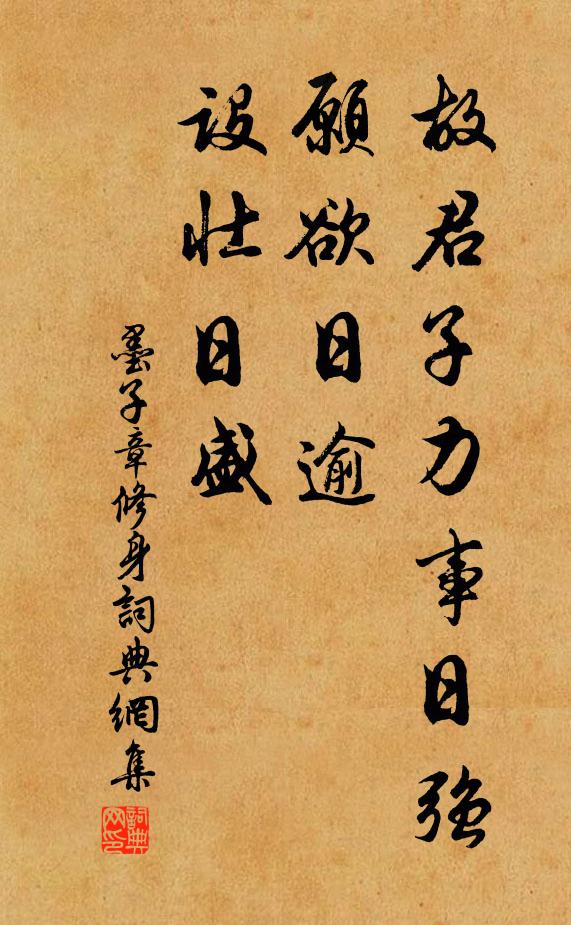 故君子力事日強
願欲日逾
設壯日盛
墨子章修身詞典網集
詞典网印